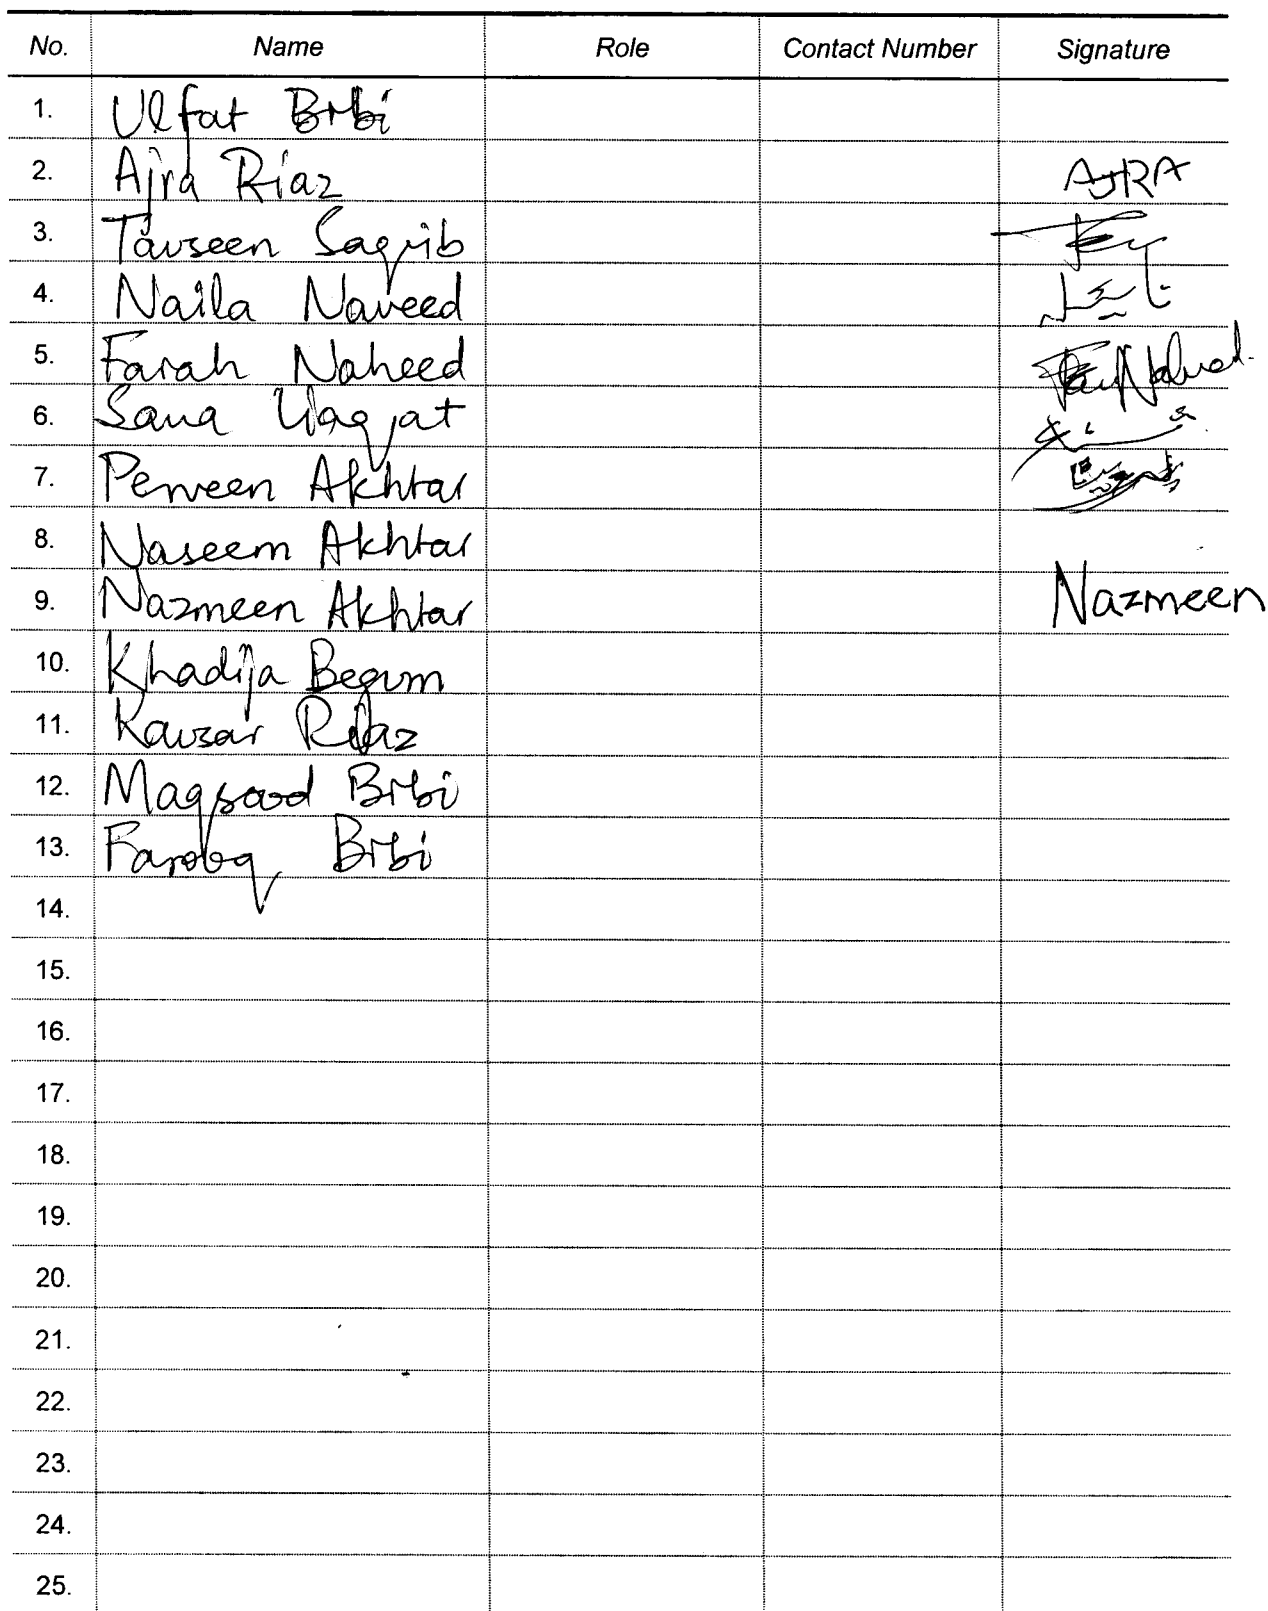 No. Name Role Contact Number Signature
1. Ulfat Bibi
2. Ajra Riaz AJRA
3. Tavseen Saqib
4. Naila Naveed نائلہ
5. Farah Naheed
6. Sana
7. Perveen Akhtar
8. Naseem Akhtar
9. Nazmeen Akhtar Nazmeen
10. Khadija Begum
11. Kausar Riaz
12. Maqsood Bibi
13. Farooq Bibi
14.
15.
16.
17.
18.
19.
20.
21.
22.
23.
24.
25.